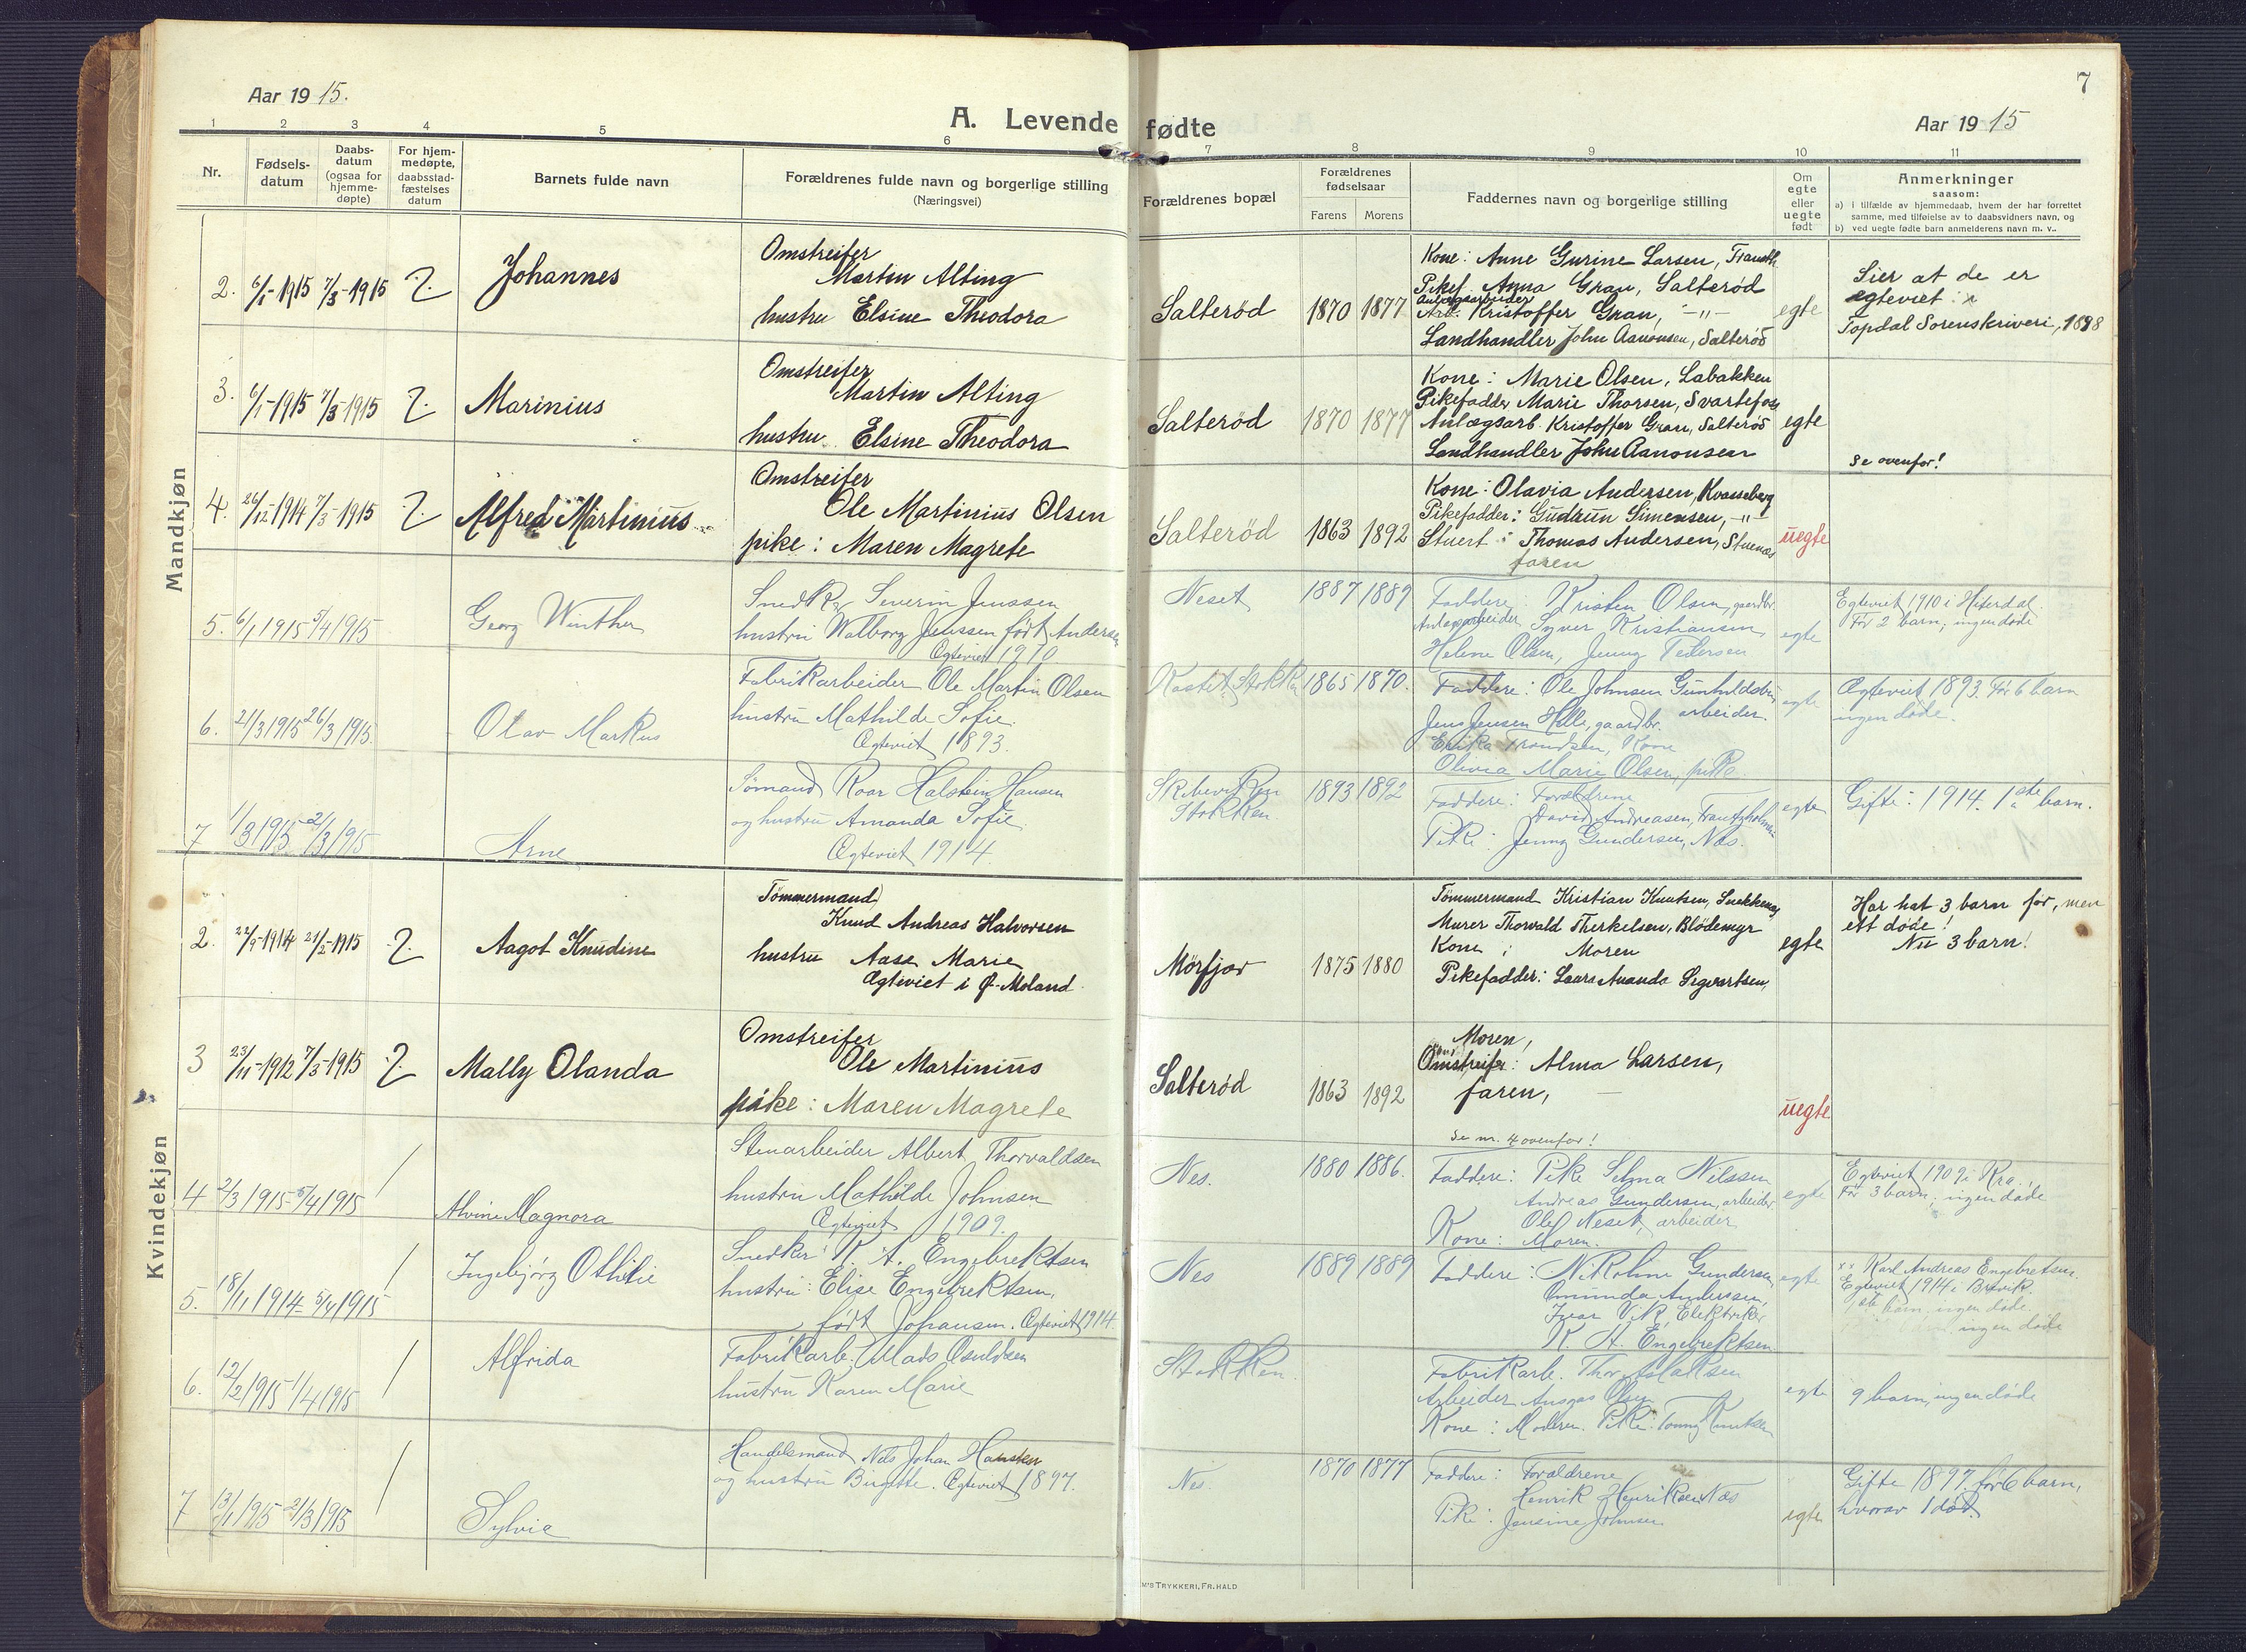 Aar 1915.
A. Levende fødte
Aar 1915
7
1 2 3 4 5 6 7 8 9 10 11
Nr.
Fødsels-
datum
Daabs-
datum
(ogsaa for
hjemme-
døpte)
For hjem-
medøpte,
daabsstad-
fæstelses
datum
Barnets fulde navn
Forældrenes fulde navn og borgerlige stilling
(Næringsvei)
Forældrenes bopæl
Forældrenes
fødselsaar
Farens Morens
Faddernes navn og borgerlige stilling
Om
egte
eller
uegte
født
Anmerkninger
saasom:
a) i tilfælde av hjemmedaab, hvem der har forrettet
samme, med tilføielse av to daabsvidners navn, og
b) ved uegte fødte barn anmelderens navn m. v..
Mandkjøn
2. 6/1-1915 7/3-1915
Johannes
Omstreifer
Martin Alting
hustru Elsine Theodora
Salterød 1870 1877
Kone: Anne Gurine Larsen,
Pikef. Anna Gran, Salterød
Anlægsarbeider
Arb. Kristoffer Gran, -"-
Landhandler John Aanonsen, Salterød
egte
Sier at de er
egteviet i
Topdal Sorenskriveri, 1898
3. 6/1-1915 7/3-1915
Marinius
Omstreifer
Martin Alting
hustru Elsine Theodora
Salterød 1870 1877
Kone: Marie Olsen, Labakken
Pikefadder Marie Thorsen, Svartefos
Anlægsarb. Kristoffer Gran, Salterød
Landhandler John Aanonsen
egte
Se ovenfor!
4. 26/12-1914 7/3-1915
Alfred Martinius
Omstreifer
Ole Martinius Olsen
pike: Maren Magrete
Salterød 1863 1892
Kone: Olavia Andersen, Kvasseberg
Pikefadder: Gudrun Simensen, -"-
Stuert: Thomas Andersen, Stuenæs
faren
uegte
5. 6/1 1915 5/4 1915
Georg Winther
Snedker Severin Jenssen
hustru Walborg Jenssen født Andersen
Egteviet 1910
Neset 1887 1889
Faddere: Kristen Olsen, gaardbr.
Anlægsarbeider Syver Kristiansen,
Helene Olsen, Jenny Pedersen
egte
Egteviet 1910 i Hiterdal.
Før 2 barn, ingen døde
6. 21/3 1915 26/3 1915
Olav Markus
Fabrikarbeider Ole Martin Olsen
hustru Mathilde Sofie.
Egteviet 1893.
Kastet, Stokken 1865 1870.
Faddere: Ole Johnsen Gunhildsbu
arbeider.
Jens Jensen Helle, gaardbr.
Erika Trondsen, Kone
Olivia Marie Olsen, pike
egte
Ægteviet 1893. Før 6 barn
ingen døde.
7 1/3 1915 21/3 1915
Arne
Sømand Roar Halstein Hansen
og hustru Amanda Sofie.
Ægteviet 1914.
Skibeviken
Stokken 1893 1892
Faddere: Forældrene
David Andreasen, Frantzholmen
Pike: Jenny Gundersen, Næs.
egte
Gifte: 1914. 1ste barn.
Kvindekjøn
2. 22/9-1914 21/2-1915
Aagot Knudine
Tømmermand
Knud Andreas Halvorsen
hustru Aase Marie
Ægteviet i Ø-Moland
Mørfjær 1875 1880
Tømmermand Kristian Knutsen, Snekkenes
Murer Thorvald Therkelsen, Blødemyr
Kone: Moren
Pikefadder: Laura Amanda Segvartsen,
egte
Har hat 3 barn før, men
ett døde!
Nu 3 barn!
3 23/11-1912 7/3-1915
Mally Olanda
Omstreifer
Ole Martinius
pike: Maren Magrete
Salterød 1863 1892
Moren,
Omstreifer: Alma Larsen,
faren,
Se nr. 4 ovenfor!
uegte
4 2/3 1915 5/4 1915
Alvine Magnora
Stenarbeider Albert Thorvaldsen
hustru Mathilde Johnsen
Ægteviet 1909.
Nes. 1880 1886.
Faddere: Pike Selma Nilssen
Andreas Gundersen, arbeider
Ole Neset, arbeider
Kone: Moren.
egte
Egteviet 1909 i Kra.,
Før 3 barn, ingen døde
5. 18/11 1914 5/4 1915
Ingebjørg Othilie
Snedker K. A. Engebrektsen
hustru: Elise Engebrektsen,
født Johansen. Ægteviet 1914.
Nes 1889 1889
Faddere: Nikoline Gundersen
Omunda Andersen,
Ivar Vik, Elektriker
K. A. Engebrektsen
egte
xx Karl Andreas Engebretsen.
Egteviet 1914 i Brevik.
1ste barn, ingen døde
ingen døde
6. 12/2 1915 1/4 1915
Alfrida
Fabrikarb. Mads Osuldsen
hustru Karen Marie
Stokken.
Fabrikarb. Thor Aslaksen
Arbeider Ansgar Olsen
Kone: Moderen. Pike: Tonny Knutsen
egte
9 barn, ingen døde
7 13/1 1915 21/3 1915
Sylvia
Handelsmand Nels Johan Hansten
og hustru Birgitte. Ægteviet 1897.
Nes. 1870 1877
Faddere: Forældrene
Henrik Henriksen Næs
Pike: Jensine Johnsen
egte
Gifte 1897. før 6 barn,
hvorav 1 død.
M'S TRYKKERI, FR. HALD